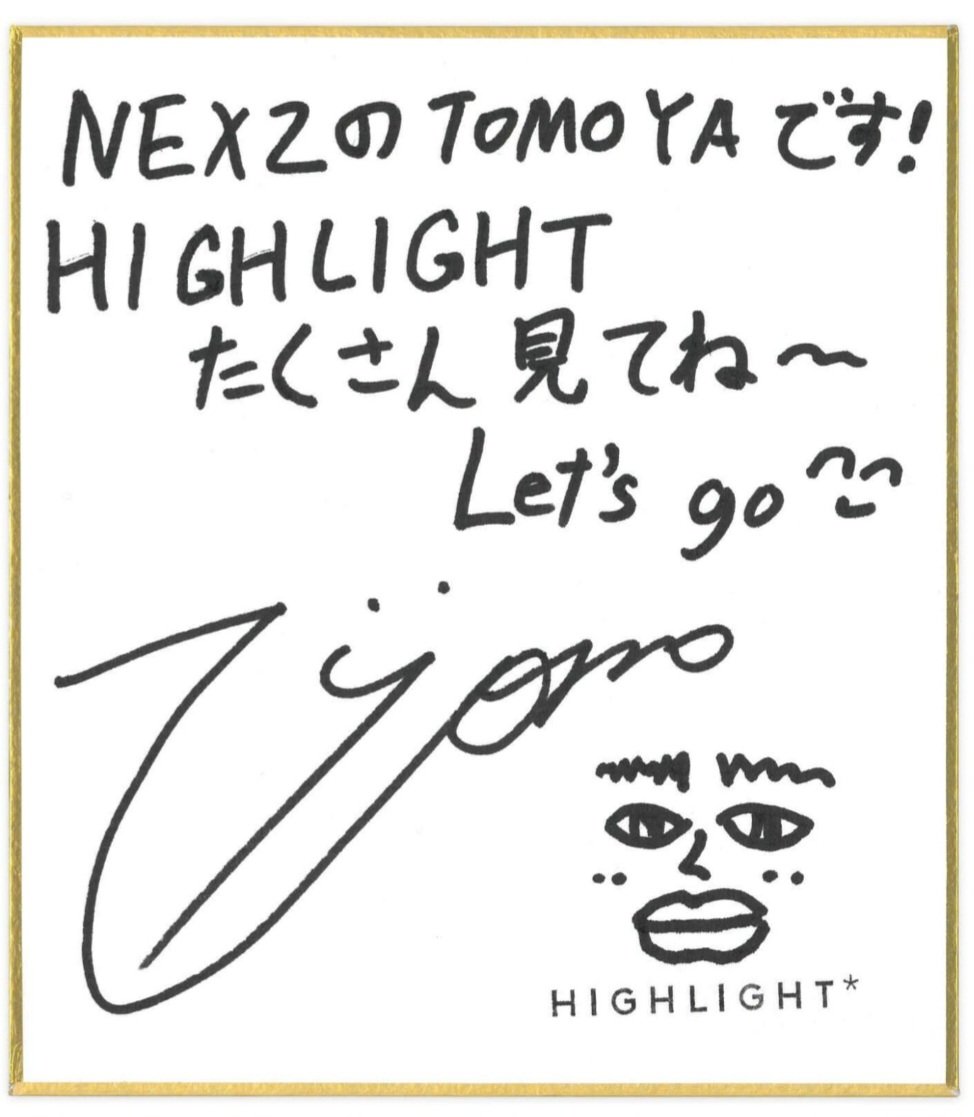 NEXZのTOMOYAです!
HIGHLIGHT
たくさん見てね〜
Let's go
HIGHLIGHT*